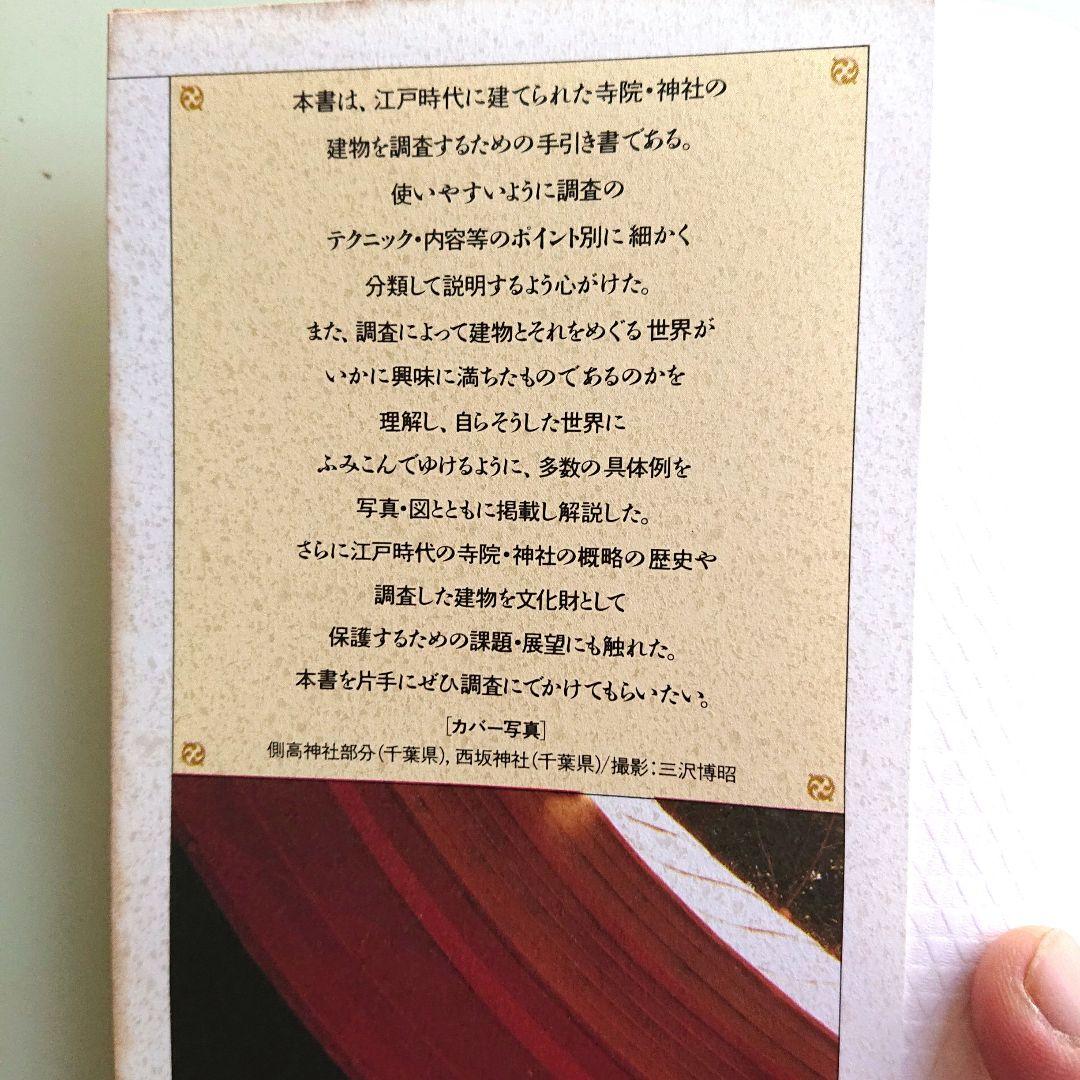 本書は、江戸時代に建てられた寺院・神社の
建物を調査するための手引き書である。
使いやすいように調査の
テクニック・内容等のポイント別に細かく
分類して説明するよう心がけた。
また、調査によって建物とそれをめぐる世界が
いかに興味に満ちたものであるのかを
理解し、自らそうした世界に
ふみこんでゆけるように、多数の具体例を
写真・図とともに掲載し解説した。
さらに江戸時代の寺院・神社の概略の歴史や
調査した建物を文化財として
保護するための課題・展望にも触れた。
本書を片手にぜひ調査にでかけてもらいたい。
[カバー写真]
側高神社部分(千葉県), 西坂神社(千葉県)/撮影:三沢博昭